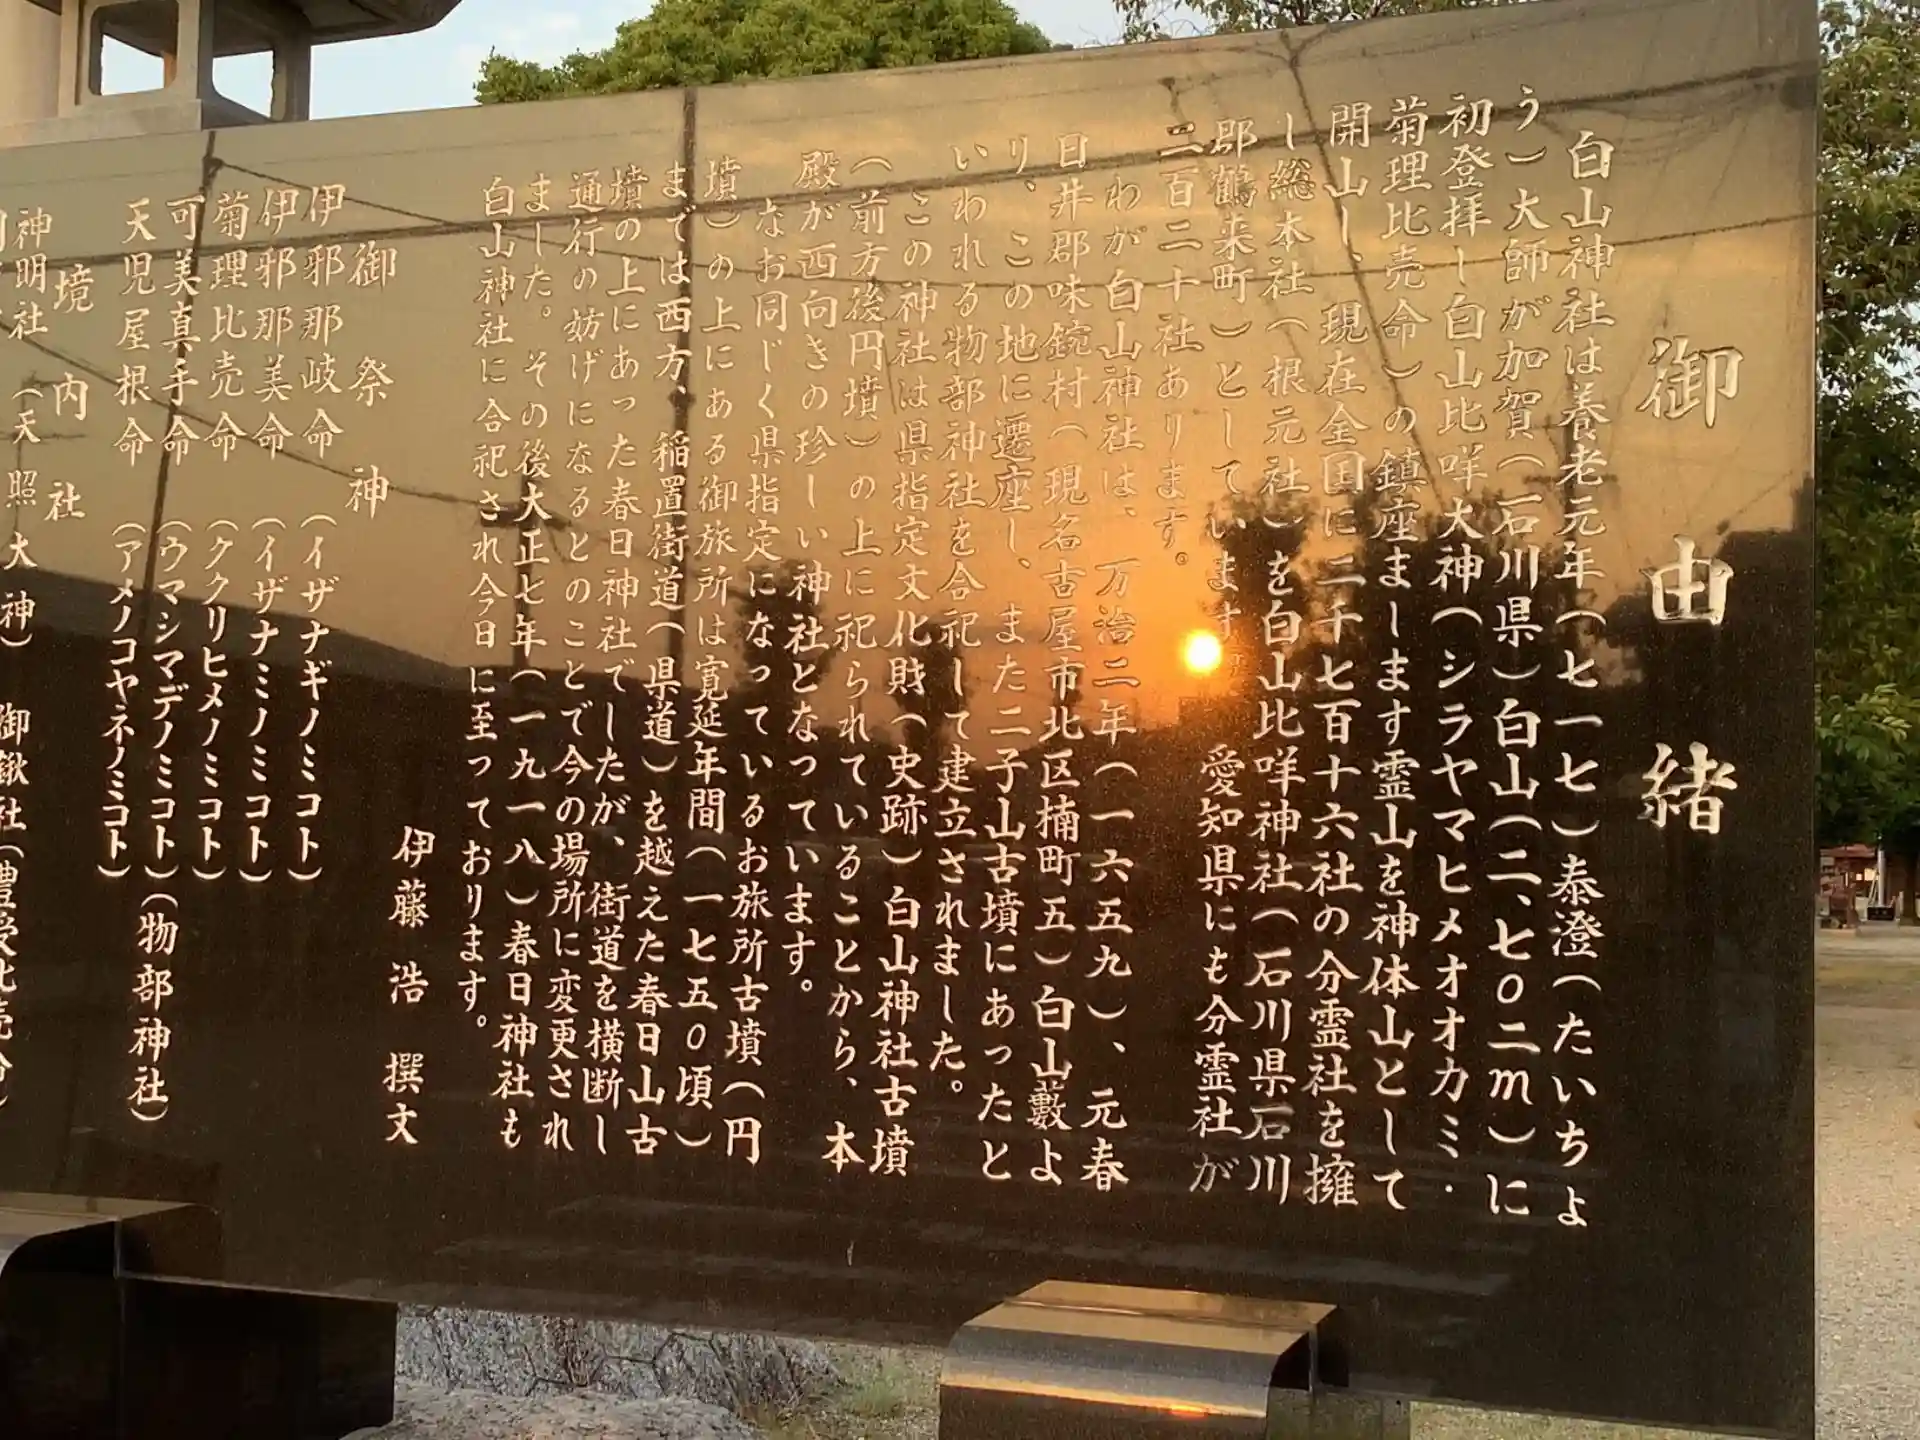 御由緒
白山神社は養老元年(七一七)泰澄(たいちょ
う)大師が加賀(石川県)白山(二、七〇二M)に
初登拝し白山比咩大神(シラヤマヒメオオカミ・
菊理比売命)の鎮座まします霊山を神体山として
開山し、現在全国に二千七百十六社の分霊社を擁
し総本社(根元社)を白山比咩神社(石川県石川
郡鶴来町)としています。愛知県にも分霊社が
二百二十社あります。
わが白山神社は、万治二年(一六五九)、元春
日井郡味鋺村(現名古屋市北区楠町五)白山藪よ
り、この地に遷座し、また二子山古墳にあったと
いわれる物部神社を合祀して建立されました。
この神社は県指定文化財(史跡)白山神社古墳
(前方後円墳)の上に祀られていることから、本
殿が西向きの珍しい神社となっています。
なお同じく県指定になっているお旅所古墳(円
墳)の上にある御旅所は寛延年間(一七五〇頃)
までは西方、稲置街道(県道)を越えた春日山古
墳の上にあった春日神社でしたが、街道を横断し
通行の妨げになるとのことで今の場所に変更され
ました。その後大正七年(一九一八)春日神社も
白山神社に合祀され今日に至っております。
伊藤浩撰文
御祭神
伊邪那岐命(イザナギノミコト)
伊邪那美命(イザナミノミコト)
菊理比売命(ククリヒメノミコト)
可美真手命(ウマシマデノミコト)(物部神社)
天児屋根命(アメノコヤネノミコト)
境内社
神明社(天照大神)御鍬社(豊受比売命)